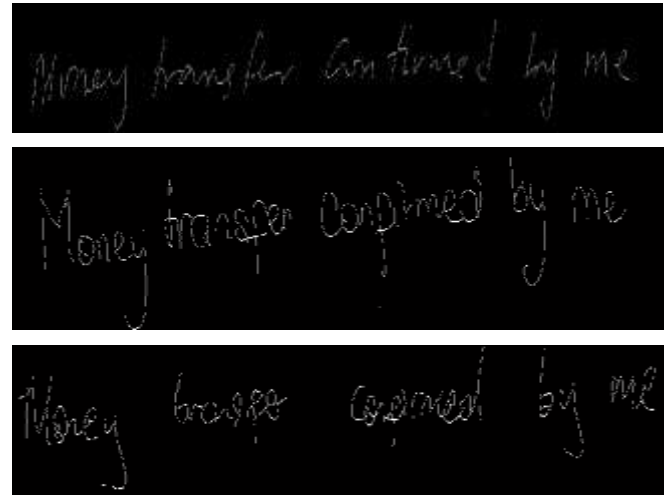 Money transfer confirmed by me
Money transfer confirmed by me
Money transfer confirmed by me